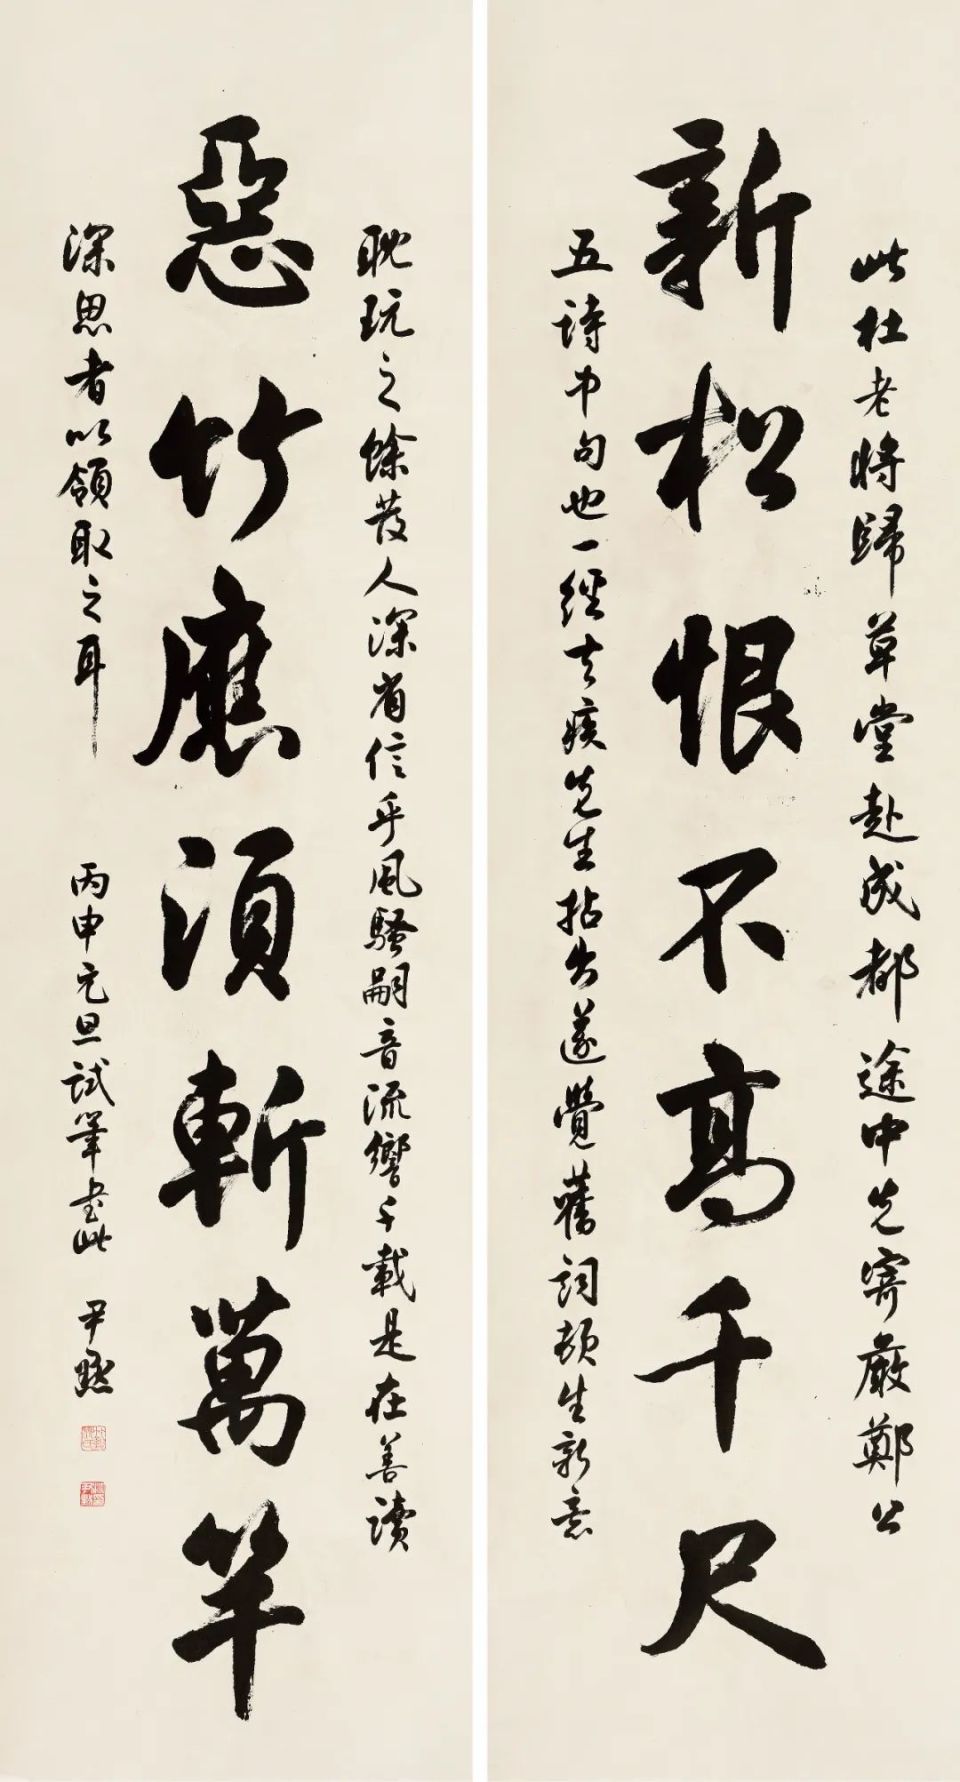 此杜老將歸草堂赴成都途中先寄嚴鄭公
新松恨不高千尺
五詩中句也一經去疾先生拈出遂覺舊詞頓生新意
耽玩之餘發人深省信乎風騷嗣音流響千載是在善讀
惡竹應須斬萬竿
深思者以領取之耳 丙申元旦試筆書此 尹默